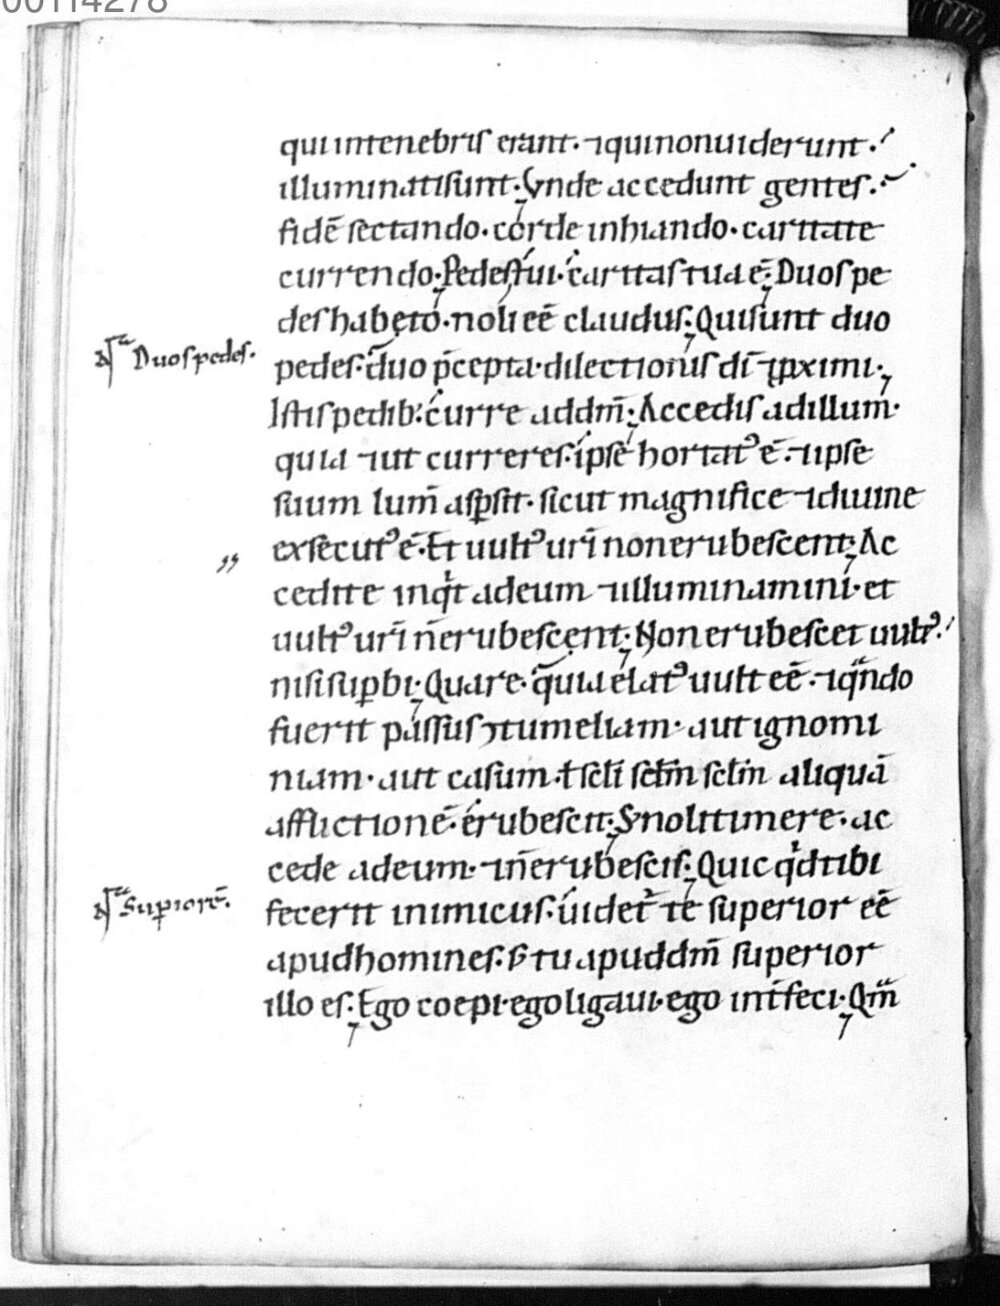 00114278
qui intenebris erant. ⁊quinonuiderunt.
illuminatisunt; Unde accedunt gentes.
fidē sectando. corde inhiando. caritate
currendo; Pedes tui. caritas tua ē; Duos pe
des habeto. noli eē claudus; Qui sunt duo
Duos pedes.
pedes. duo p̄cepta. dilectionis dī ⁊pximi;
Istis pedib: curre addm̄; Accedis adillum.
quia ⁊ut curreres. ipse hortatꝰ ē. ⁊ipse
suum lum̄ asp̱sit. sicut magnifice ⁊diuine
exsecutꝰ ē. Et uultꝰ urī non erubescent; Ac
cedite inqͥt adeum ⁊illuminamini. et
uultꝰ urī n̄ erubescent; Non erubescet uultꝰ.
nisi sup̱bi; Quare. quia elatꝰ uult eē. ⁊qͣndo
fuerit passus ꝯtumeliam. aut ignomi
niam. aut casum. ł sc̄li sc̄lm̄ sc̄lm̄ aliquā
afflictionē. erubescit; S; noli timere. ac
cede adeum. ⁊n̄ erubescis; Quic qͥd tibi
Superiorē.
fecerit inimicus. uidet᷑ te superior eē
apud homines. s; tu apud dm̄ superior
illo es; Ego coepi. ego ligaui. ego int̄feci; Qm̄